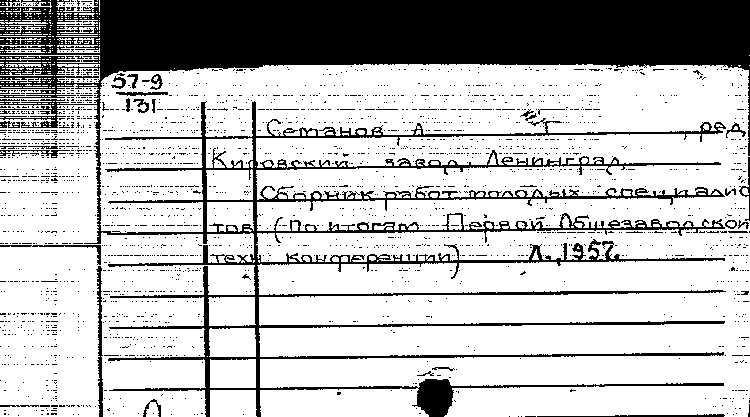 57-9
131
Семанов, А. , ред.
Кировский завод, Ленинград.
Сборник работ молодых специалис
тов (По итогам Первой Общезаводской
техн. конференции) Л., 1957.